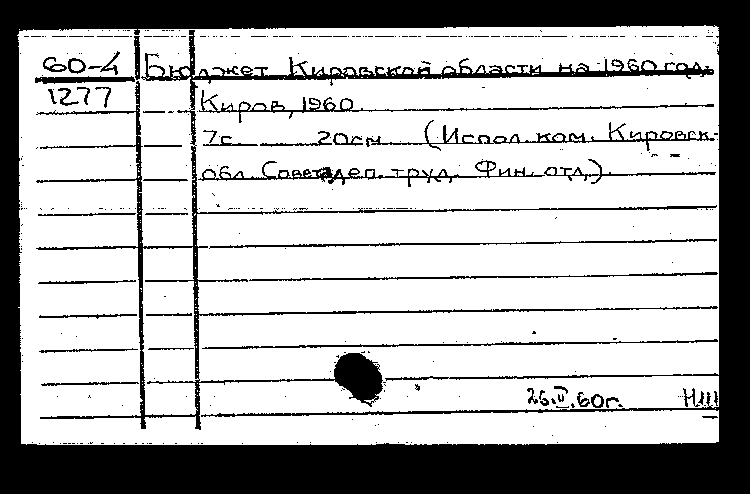 60-4 Бюджет Кировской области на 1960 год.
1277 Киров, 1960.
7с. 20см (Испол. ком. Кировск.
обл. Совета деп. труд. Фин. отд.).
26.II.60г. НШ